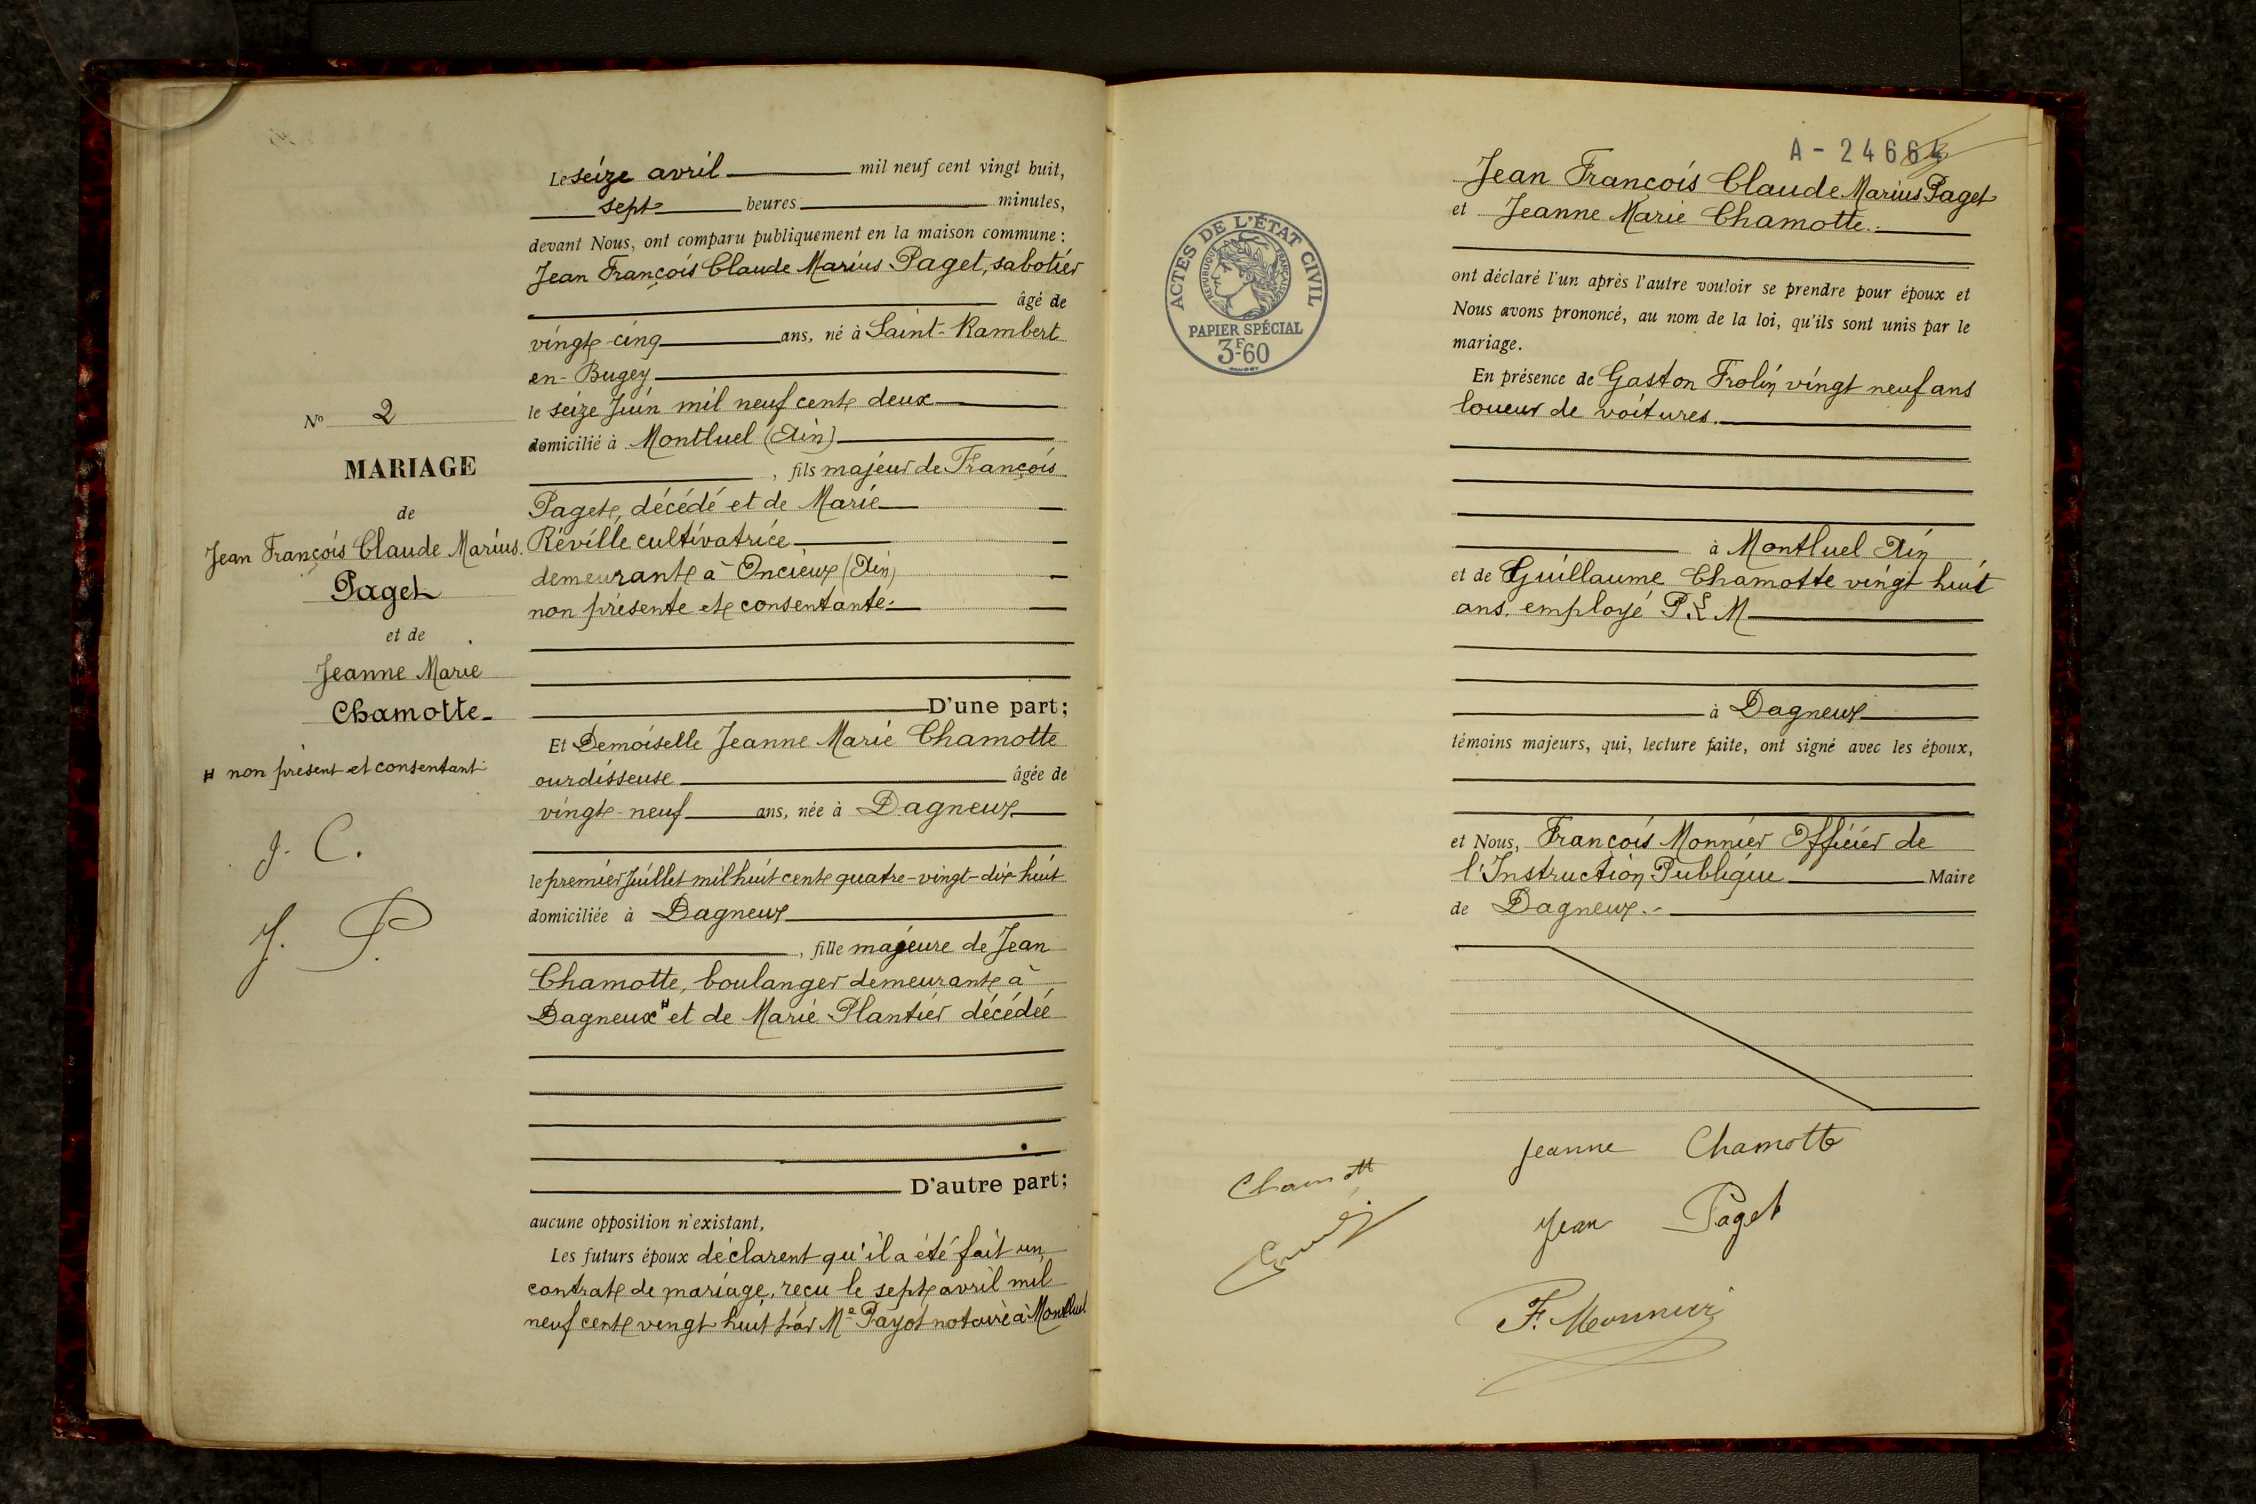 Le seize avril mil neuf cent vingt huit,
sept heures minutes,
devant Nous, ont comparu publiquement en la maison commune :
Jean François Claude Marius Paget, sabotier
âgé de
vingt-cinq ans, né à Saint-Rambert
en-Bugey
le seize Juin mil neuf cent deux
domicilié à Montluel (Ain)
, fils majeur de François
Paget, décédé et de Marie
Réville cultivatrice
demeurant à Oncieux (Ain)
non présente et consentante.
D'une part ;
Et Demoiselle Jeanne Marie Chamotte
ourdisseuse âgée de
vingt-neuf ans, née à Dagneux
le premier Juillet mil huit cent quatre-vingt-dix-huit
domiciliée à Dagneux
, fille majeure de Jean
Chamotte, boulanger demeurant à
Dagneux # et de Marie Plantier décédée
D'autre part ;
aucune opposition n'existant,
Les futurs époux déclarent qu'il a été fait un
contrat de mariage, reçu le sept avril mil
neuf cent vingt huit par Me Payot notaire à Montluel
No 2
MARIAGE
de
Jean François Claude Marius
Paget
et de
Jeanne Marie
Chamotte
# non présent et consentant
J. C.
J. P.
A - 24664
Jean François Claude Marius Paget
et Jeanne Marie Chamotte.
ont déclaré l'un après l'autre vouloir se prendre pour époux et
Nous avons prononcé, au nom de la loi, qu'ils sont unis par le
mariage.
En présence de Gaston Frolin vingt neuf ans
loueur de voitures.
à Montluel Ain
et de Guillaume Chamotte vingt huit
ans. employé P L M
à Dagneux
témoins majeurs, qui, lecture faite, ont signé avec les époux,
et Nous, François Monnier Officier de
l'Instruction Publique Maire
de Dagneux.
ACTES DE L'ÉTAT CIVIL
RÉPUBLIQUE FRANÇAISE
PAPIER SPÉCIAL
3F60
Jeanne Chamotte
Chamotte
Jean Paget
F. Monnier